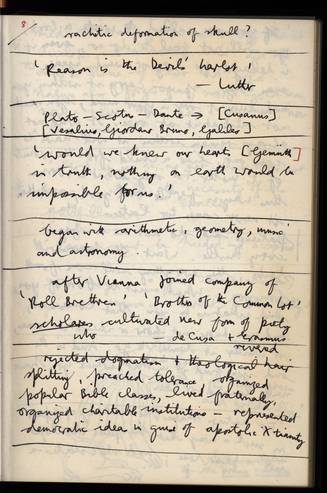 8
rachitic deformation of skull?
'Reason is the Devil's harlot'
— Luther
Plato – Scotus – Dante → [Cusanus]
[Vesalius, Giordano Bruno, Galileo]
'would we knew our hearts [Gemüth]
in truth, nothing on earth would be
impossible for us.'
began with arithmetic, geometry, music
and astronomy.
after Vienna joined company of
'Roll Brethren' 'Brothers of the Common Lot'
scholars cultivated new form of piety
who — de Cusa + Erasmus
revered
rejected dogmatism + theological hair
splitting, preached tolerance organized
popular Bible classes, lived fraternally,
organized charitable institutions – represented
democratic idea in guise of apostolic Xtianity